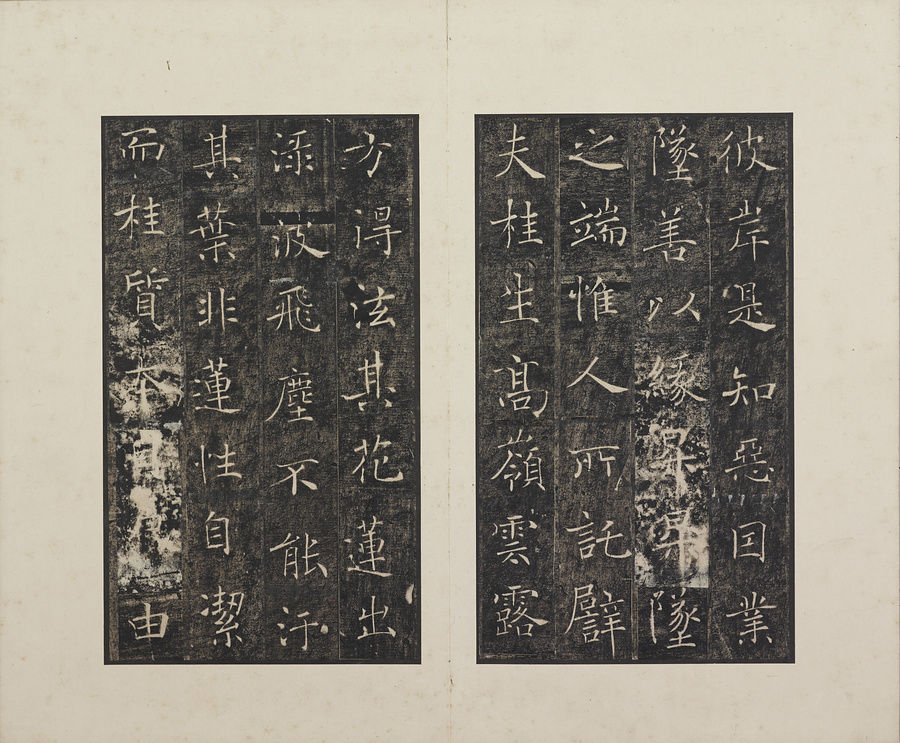 彼岸是知惡囙業
墜善以緣昇昇墜
之端惟人所託譬
夫桂生髙嶺雲露
方淂泫其花蓮出
渌波飛塵不能汙
其葉非蓮性自潔
而桂質本由